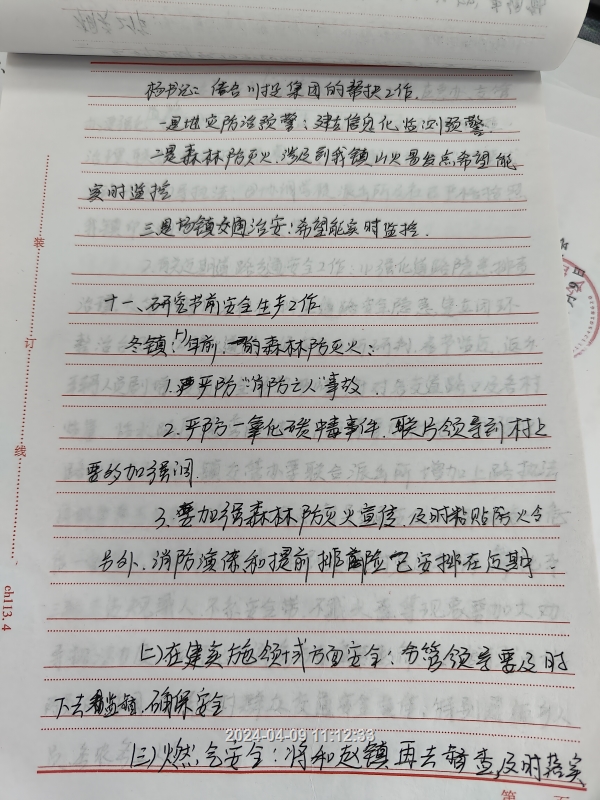 杨书记：结合川投集团的帮扶工作.
一是地灾防治预警：建立信息化监测预警.
二是森林防灭火.涉及到我镇山火易发点希望能
实时监控
三是场镇交通治安：希望能实时监控.
十一、研究节前安全生产工作
冬镇：年前，的森林防灭火：
1.严防“消防亡人”事故.
2.严防一氧化碳中毒事件.联片领导到村上
要多加强调
3.要加强森林防灭火宣传.及时粘贴防火令
另外.消防演练和提前排险已安排在近期.
(二)在建实施领域方面安全：分管领导要及时
下去.确保安全
(三)燃气安全：将和赵镇再去督查,及时落实
装
订
线
ch113.4
2024-04-09 11:12:33
第 页